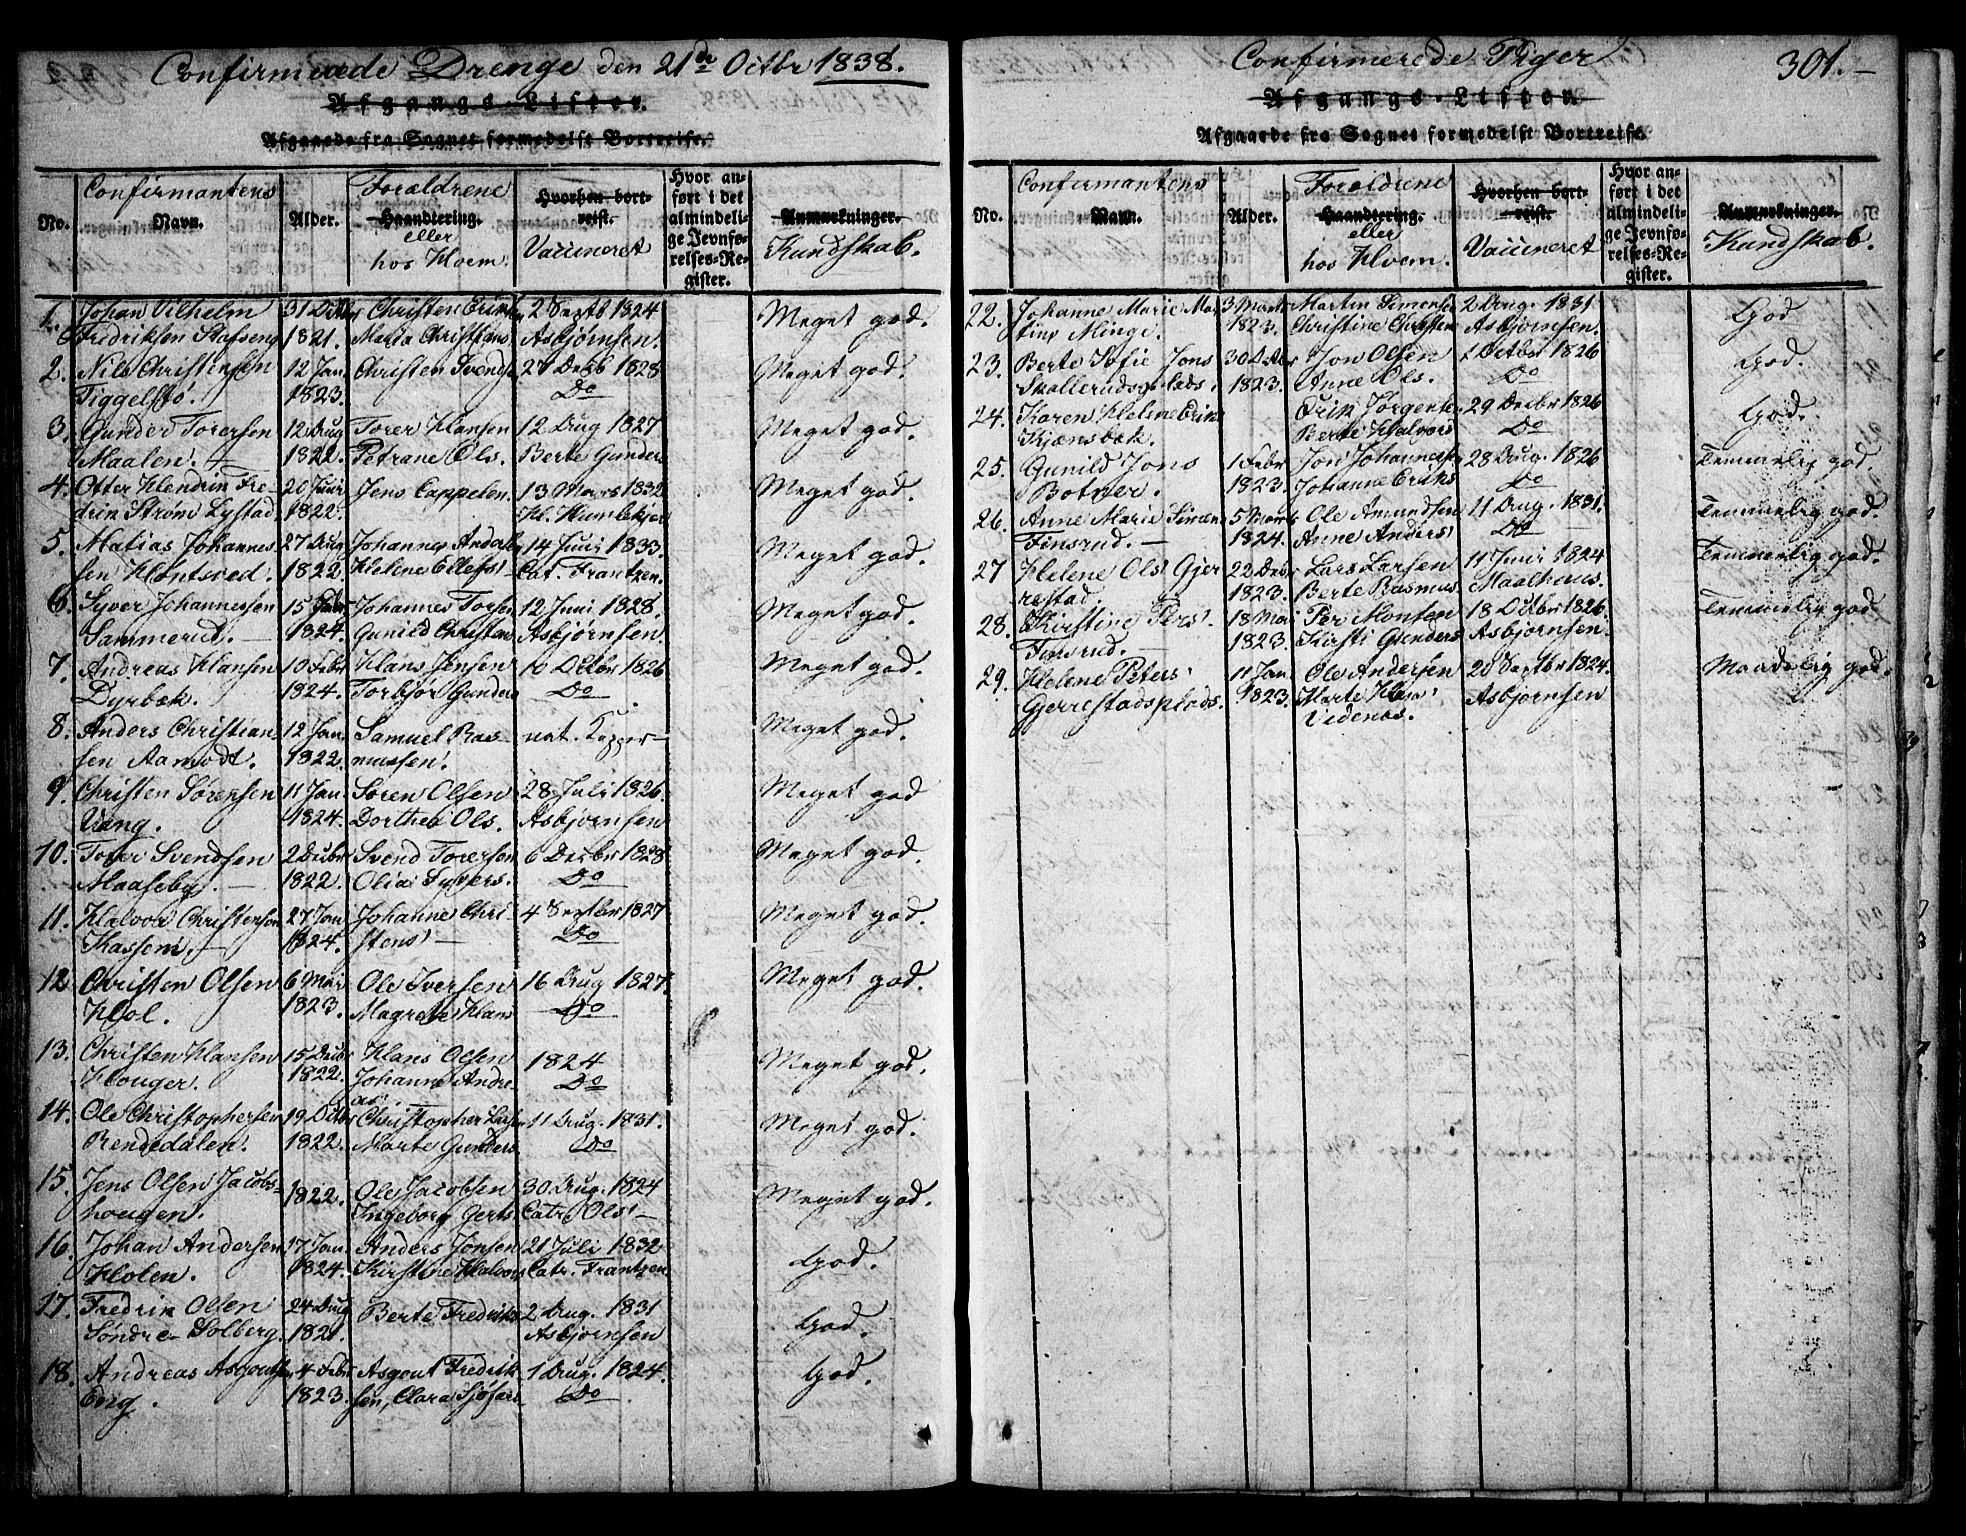 Confirmerede Drenge den 21de Octbr 1838.
Afgangs-Lister.
Afgaaede fra Sognet formedelst Bortreise.
No.
Confirmantens
Navn.
Alder.
Forældrene
Haandtering.
eller
hos Hvem.
Hvorhen bort-
reist.
Vaccineret
Hvor an-
ført i det
almindeli-
ge Jevnfø-
relses-Re-
gister.
Anmærkninger.
Kundskab.
1. Johan Vilhelm 31 Christen 2 Septb 1824 Meget god.
Fredriksen 1821. Maria Christians Asbjørnsen.
2. Nils Christensen 12 Jan Christen Svends 27 Decb 1828 Meget god.
Tiggelstø. 1823. Do
3. Gunder Torersen 12 Aug Torer Hansen 12 Aug 1827 Meget god.
Maalen. 1822. Petrane Ols. Berte Gunders
4. Otter Hendrik Fre- 20 Juni Jens Cappelen 13 Mars 1832 Meget god.
drik Strøm Lystad 1822. Hl. Humlekjer
5. Matias Johannes- 27 Aug Johannes 14 Juni 1833 Meget god.
sen 1822. Helene Ellefs Cat. Frantzen.
6. Syver Johannessen 15 Febr Johannes Torsen 12 Juni 1828. Meget god.
Sammerud. 1824. Gunild Christen Asbjørnsen.
7. Andreas Hansen 10 Febr Hans Jensen 10 Octbr 1826 Meget god.
Dyrbek. 1824. Torbjør Gunders Do
8. Anders Christian- 12 Jan Samuel Ras- nat. Kopper Meget god.
sen Aamodt. 1822. mussen.
9. Christen Sørensen 11 Jan. Søren Olsen 28 Juli 1826. Meget god
Vang. 1824. Dorthea Ols. Asbjørnsen
10. Torer Svendsen 2 Decbr Svend Torersen 6 Decbr 1828 Meget god.
Maaseby. 1822. Olia Syvers. Do
11. Halvor Christensen 27 Jan Johanne Chri- 4 Septbr 1827 Meget god.
Kassem. 1824. stens Do
12. Christen Olsen 6 Mai Ole Iversen 16 Aug 1827. Meget god.
Hol. 1823. Magrete Hans Do
13. Christen Hansen 15 Decbr Hans Olsen 1824 Meget god.
Houger. 1822. Johanne Andre- Do
as.
14. Ole Christophersen 19 Octbr Christopher Larsen 11 Aug. 1831. Meget god.
Rendedalen. 1822. Marte Gunders Do
15. Jens Olsen Jacobs- 1822. Ole Jacobsen 30 Aug. 1824 Meget god.
hougen. Ingeborg Gerts Catr. Ols
16. Johan Andersen 17 Jan. Anders Jonsen 21 Juli 1832 God.
Holen. 1824. Kirstine Halvors Catr. Frantzen.
17. Fredrik Olsen 24 Aug Berte Fredriks 2 Aug. 1831 God.
Søndre Solberg. 1821. Asbjørnsen
18. Andreas Asgoutsen 4 Febr Asgout Fredrik- 1 Aug. 1824. God.
Eng. 1823. sen, Clara Do
Confirmerede Piger
301.
Afgangs-Listen.
Afgaaede fra Sognet formedelst Bortreise.
No.
Confirmantens
Navn.
Alder.
Forældrene
Haandtering.
eller
hos Hvem.
Hvorhen bort-
reist.
Vaccineret
Hvor an-
ført i det
almindeli-
ge Jevnfø-
relses-Re-
gister.
Anmærkninger.
Kundskab.
22. Johanne Marie Mar- 3 Marts Martin Simensen 2 Aug. 1831 God
tins Minge. 1823. Christine Christen Asbjørnsen.
23. Berte Sofie Jons 30 Jon Olsen 1 Octbr 1826 God.
Skallerudsplads. 1823. Anne Ols. Do
24. Karen Helene Erik Erik Jørgensen 29 Decbr 1826 God.
Kjænsbek. Berte Halvors Do
25. Gunild Jons 1 Febr Jon Johannes 28 Aug. 1826 Temmelig god.
Botner. 1823. Johanne Eriks Do
26. Anne Marie 5 Marts Ole Amundsen 11 Aug. 1831. Temmelig god.
Finsrud. 1824. Anne Anders Do
27 Helene Ols Gjer- 22 Decbr Lars Larsen 11 Juni 1824 Temmelig god.
restad. 1823. Berte Rasmus Maalhuus.
28. Kirstine Pers. 18 Mai Per Monsen 18 Octbr 1826. Temmelig god
Finsrud. 1823. Kirsti Gunders Asbjørnsen.
29. Helene Peters 11 Jan. Ole Andersen 20 Septbr 1824. Maadelig god.
Gjerrestadsplads. 1823. Marte Asbjørnsen
Videnæs.